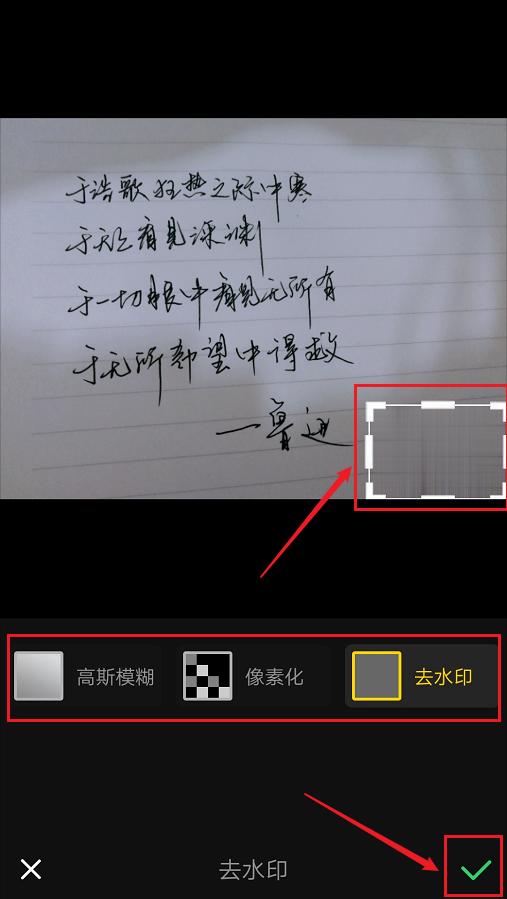 于浩歌狂热之际中寒
于天上看见深渊
于一切眼中看见无所有
于无所希望中得救
一鲁迅
高斯模糊
像素化
去水印
去水印